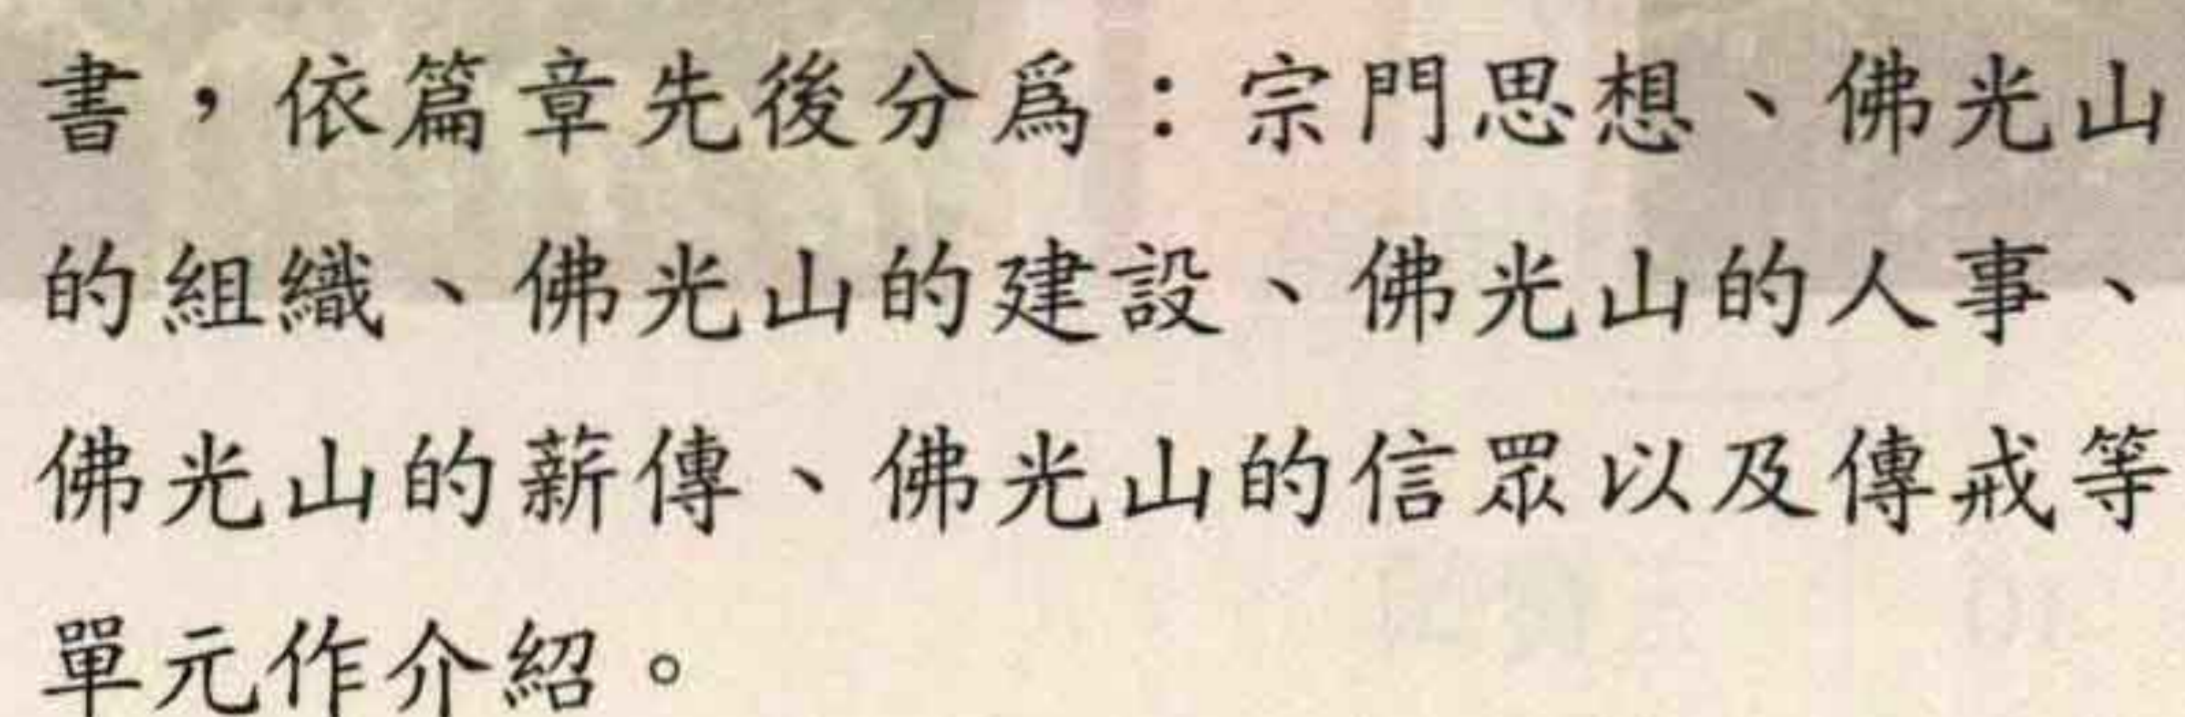 書，依篇章先後分爲：宗門思想、佛光山
的組織、佛光山的建設、佛光山的人事、
佛光山的薪傳、佛光山的信眾以及傳戒等
單元作介紹。